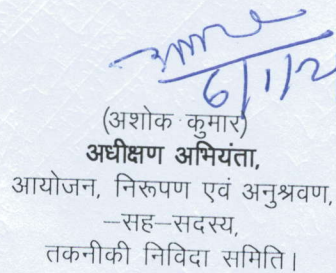 6/1/2
(अशोक कुमार)
अधीक्षण अभियंता,
आयोजन, निरूपण एवं अनुश्रवण,
–सह–सदस्य,
तकनीकी निविदा समिति।